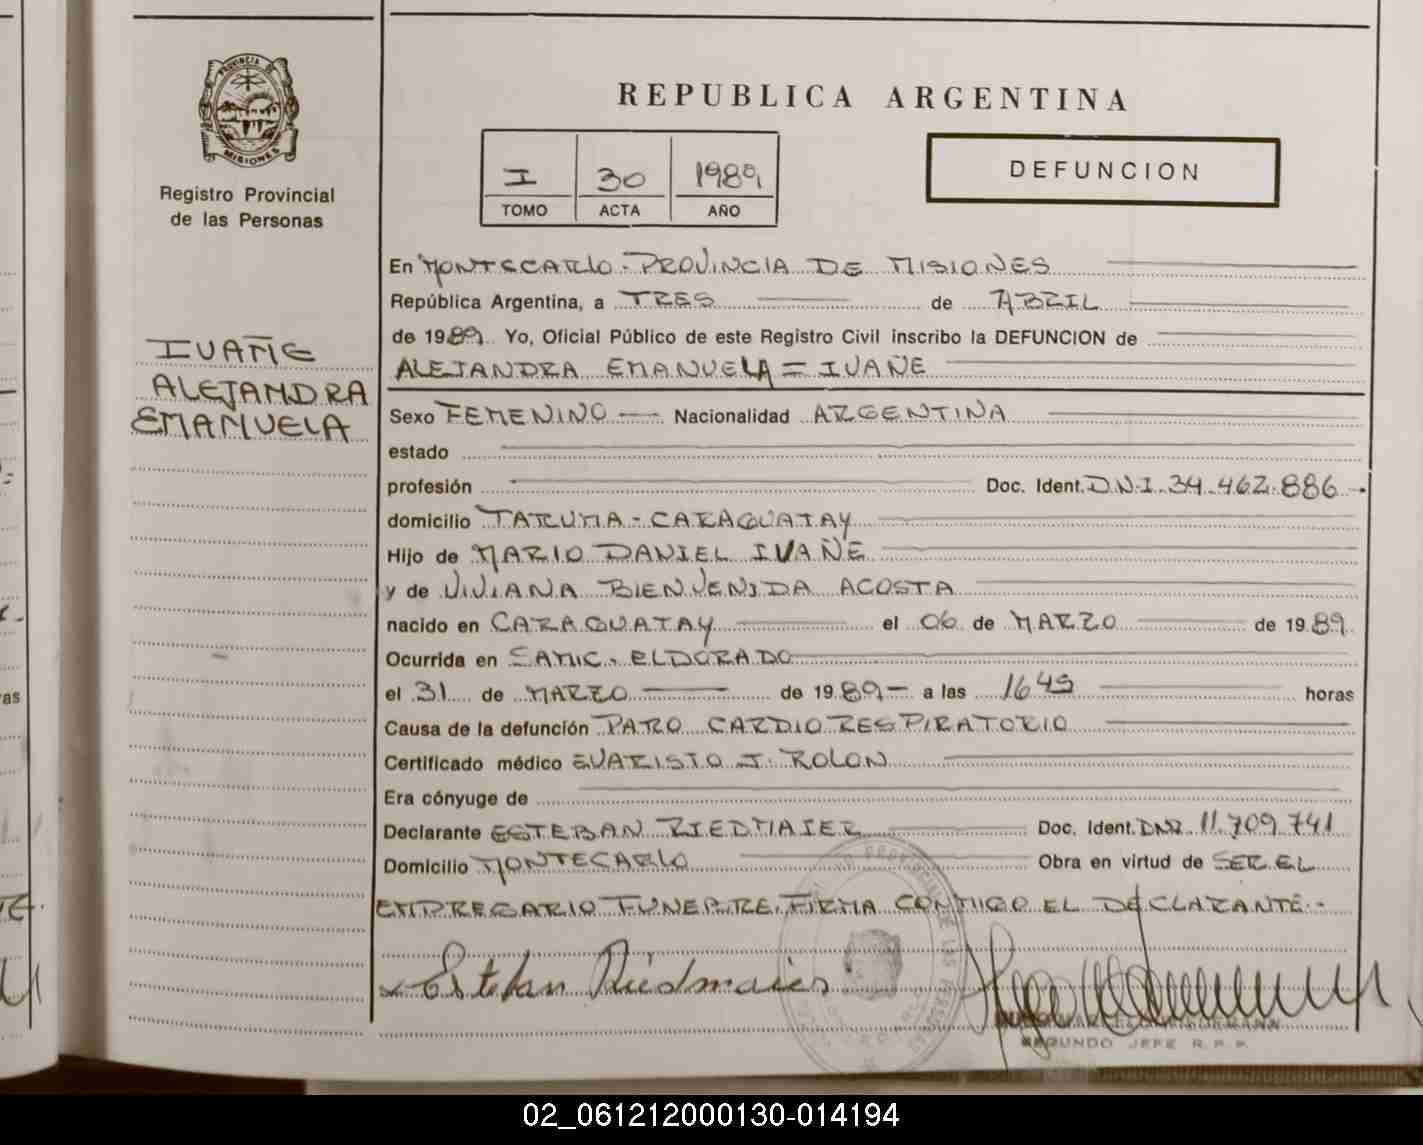 PROVINCIA DE
MISIONES
Registro Provincial
de las Personas
IVAÑE
ALEJANDRA
EMANUELA
REPUBLICA ARGENTINA
I 30 1989
TOMO ACTA AÑO
DEFUNCION
En MONTECARLO - PROVINCIA DE MISIONES
República Argentina, a TRES de ABRIL
de 1989 Yo, Oficial Público de este Registro Civil inscribo la DEFUNCION de
ALEJANDRA EMANUELA = IVAÑE
Sexo FEMENINO Nacionalidad ARGENTINA
estado
profesión Doc. Ident. D.N.I. 34.462.886
domicilio TARUMA - CARAGUATAY
Hijo de MARIO DANIEL IVAÑE
y de VIVIANA BIENVENIDA ACOSTA
nacido en CARAGUATAY el 06 de MARZO de 1989
Ocurrida en SAMIC - ELDORADO
el 31 de MARZO de 1989 a las 1645 horas
Causa de la defunción PARO CARDIORESPIRATORIO
Certificado médico EVARISTO J. ROLON
Era cónyuge de
Declarante ESTEBAN RIEDMAIER Doc. Ident. DNI. 11.709.741
Domicilio MONTECARLO Obra en virtud de SER EL
EMPRESARIO FUNEBRE. FIRMA CONMIGO EL DECLARANTE.-
Esteban Riedmaier
SEGUNDO JEFE R.P.P.
02_061212000130-014194